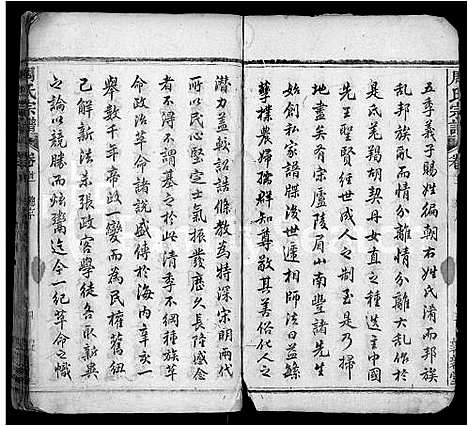 五季義子賜姓編朝右姓氏淆而邦族
乱邦族亂而情分離情分離大乱作於
是氐羌羯胡契丹女直之種迭主中國
先王之所以經世成人之制于是乃
地盡矣有宋廬陵眉山南豐諸先生
始創私家譜牒後世遞相師法日益繇
孽樸農婦孺群知尊敬其善俗化人之
潛力益較詔誥條教為特深宋明兩代
所以民心堅定士氣振發歷久長陸感念
者不得不謂基之於此清季不綱種族革
命政治革命諸説盛傳於海内辛亥一
舉數千年帝政一變而為民權舊紐
已解新法未張政客學徒各取新異
之論以競勝而炫鬻迄今一紀革命之幟
周氏宗譜
卷